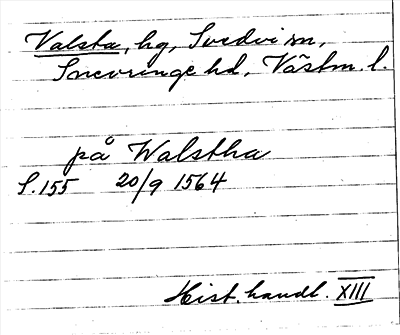 Valsta, hg, Svedvi sn,
Snevringe hd, Västm. l.
på Walstha
S. 155 20/9 1564
Hist. handl. XIII